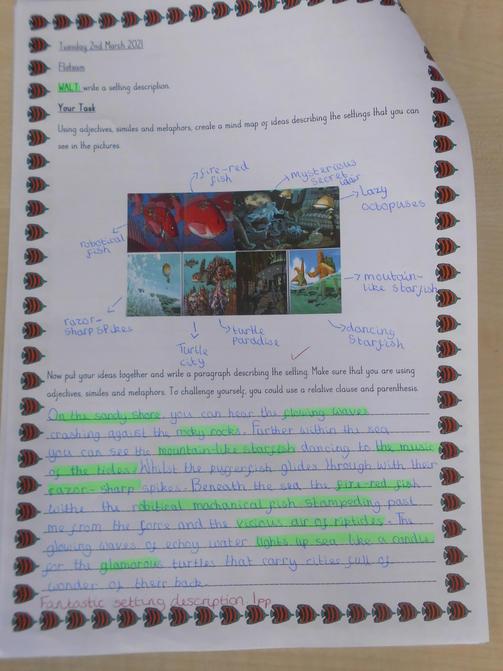 Tuesday 2nd March 2021
Flotsam
WALT: write a setting description.
Your Task
Using adjectives, similes and metaphors, create a mind map of ideas describing the settings that you can
see in the pictures.
fire-red
fish
mysterious
secret
lair
lazy
octopuses
robotical
fish
moutain-
like starfish
razor-
sharp spikes
Turtle
city
turtle
paradise
dancing
starfish
Now put your ideas together and write a paragraph describing the setting. Make sure that you are using
adjectives, similes and metaphors. To challenge yourself, you could use a relative clause and parenthesis.
On the sandy shore, you can hear the flowing waves
crashing against the rocky rocks. Further within the sea
you can see the mountain-like starfish dancing to the music
of the tides. Whilst the pufferfish glides through with their
razor-sharp spikes. Beneath the sea the fire-red fish
withe the robitical machanical fish stampeding past
me from the force and the vicious air of riptides. The
glowing waves of echoy water lights up sea like a candle
for the glamorous turtles that carry cities full of
wonder of their back.
Fantastic setting description. 1pp